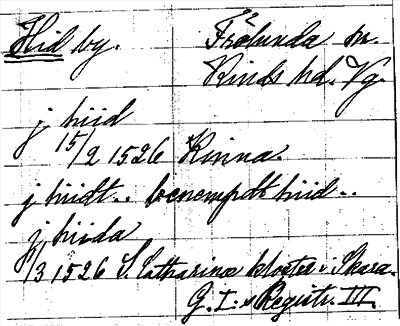 Hid by. Frölunda sn.
Kinds hd. Vg.
j hiid
15/2 1526 Kinna.
j hiidt.. benempdt hiid..
j hiida
1/3 1526 S. Catharinæ kloster i Skara.
G. I:s Registr. III